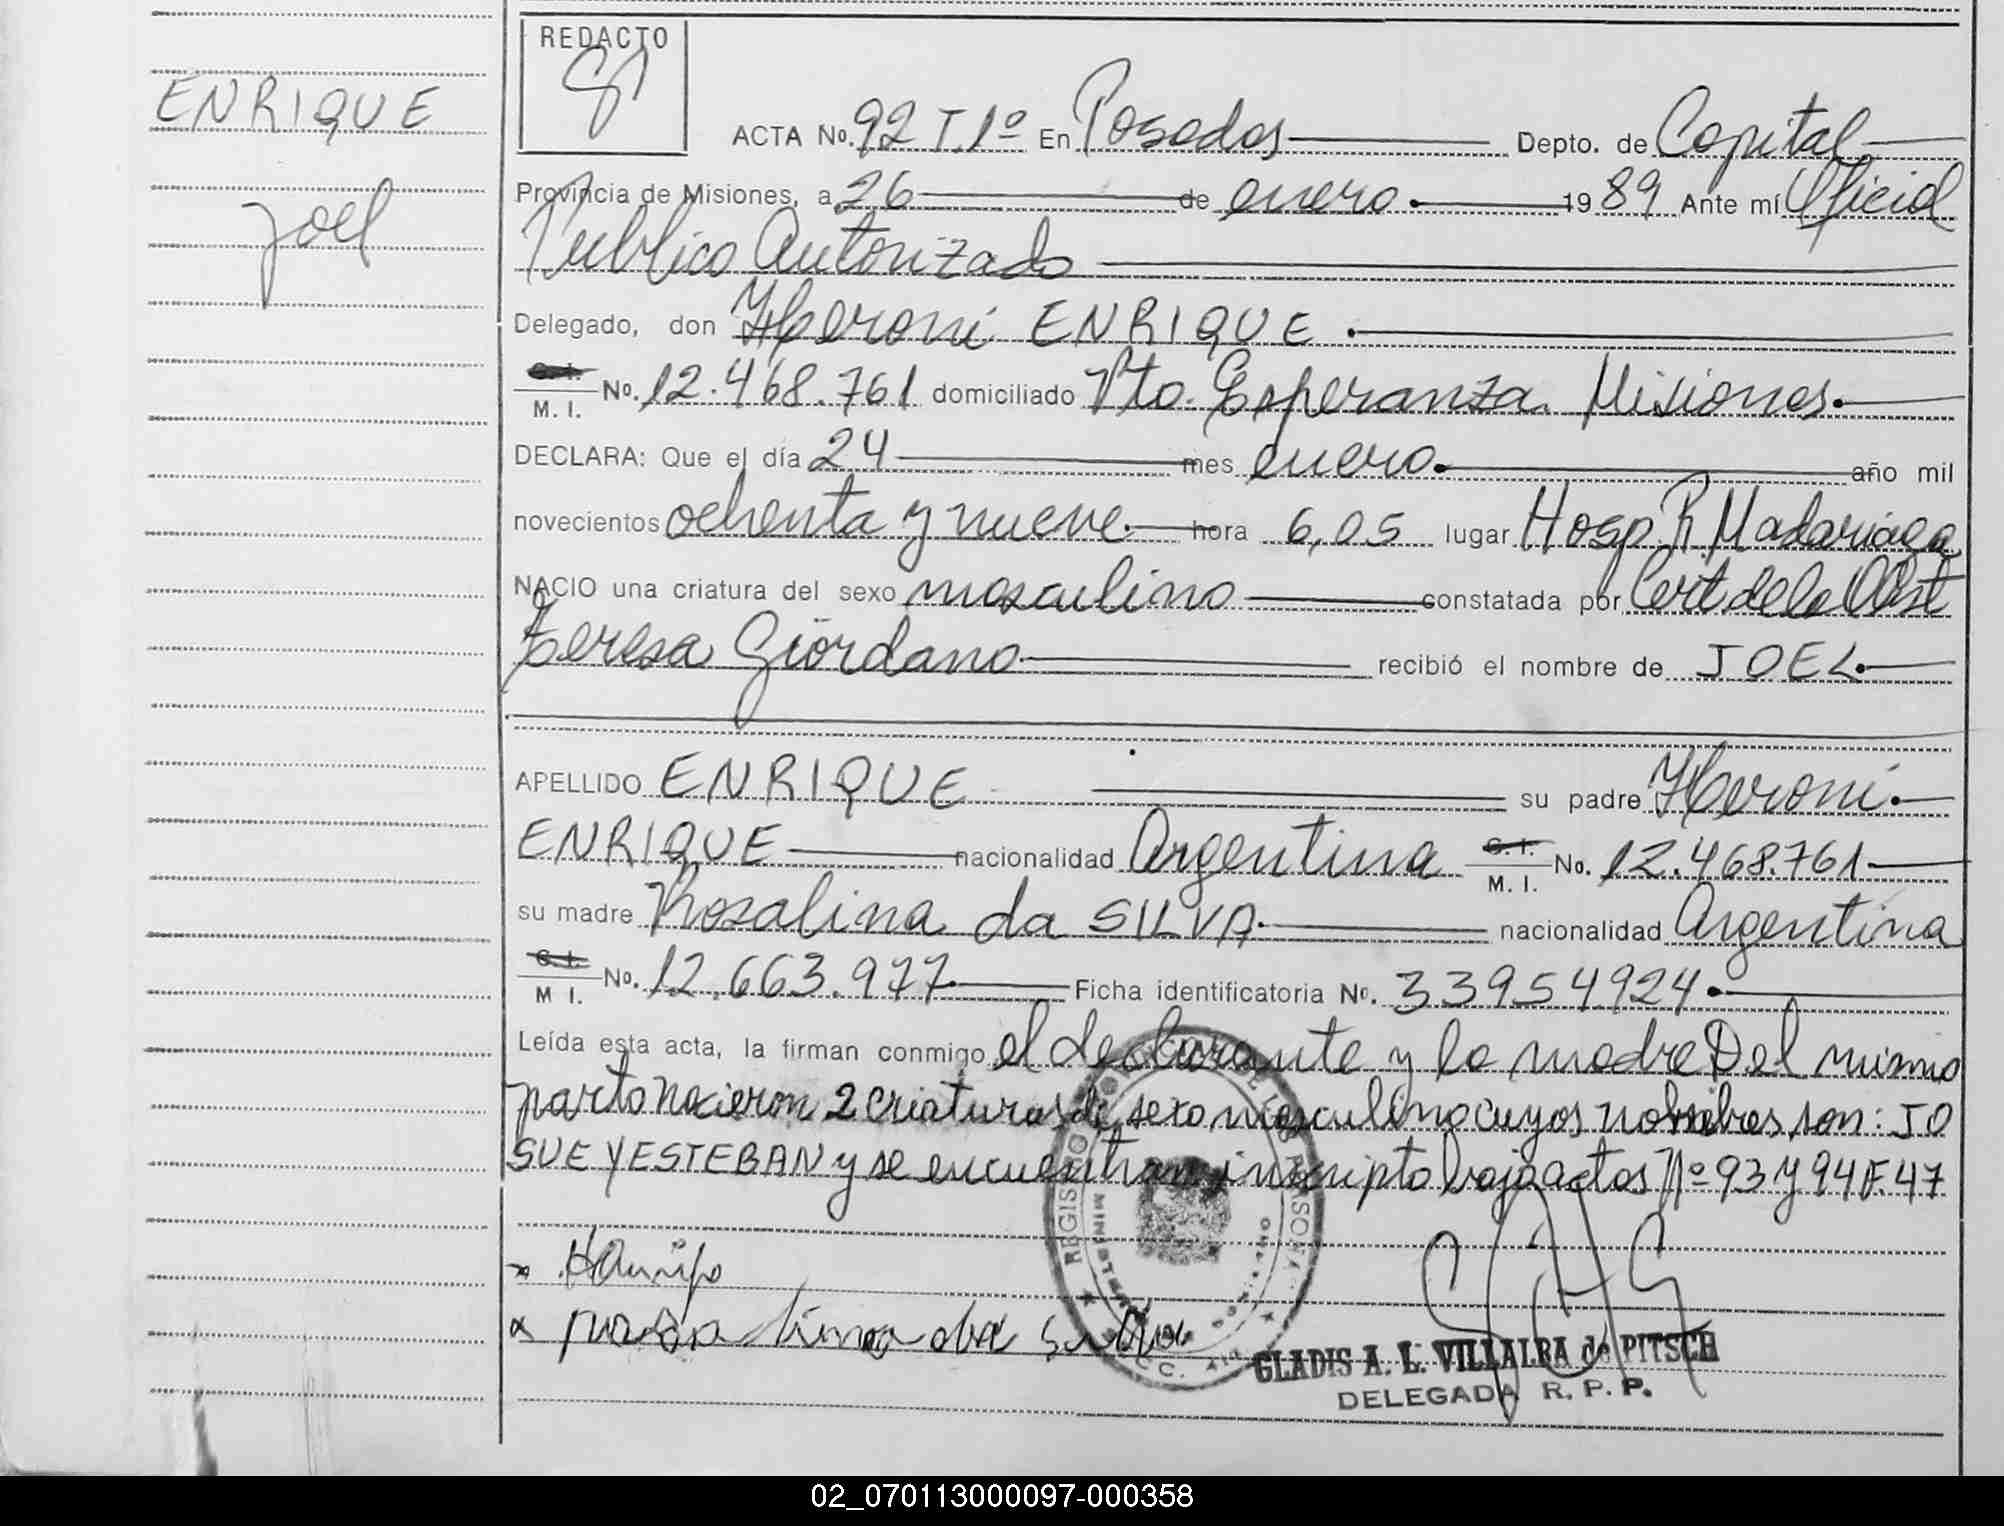 ENRIQUE
Joel
REDACTO
ACTA No. 92 T.1º En Posadas Depto. de Capital
Provincia de Misiones, a 26 de enero 1989 Ante mí Oficial
Publico Autorizado
Delegado, don Heroni ENRIQUE
C. I.
M. I. No. 12.468.761 domiciliado Pto. Esperanza. Misiones.
DECLARA: Que el día 24 mes enero. año mil
novecientos ochenta y nueve. hora 6,05 lugar Hosp. R. Madariaga
NACIO una criatura del sexo masculino constatada por Cert de la Obst
Teresa Giordano recibió el nombre de JOEL.
APELLIDO ENRIQUE su padre Heroni.
ENRIQUE nacionalidad Argentina C. I. M. I. No. 12.468.761
su madre Rosalina da SILVA. nacionalidad Argentina
C. I.
M I. No. 12.663.977 Ficha identificatoria No. 33954924.
Leída esta acta, la firman conmigo el declarante y la madre Del mismo
parto nacieron 2 criaturas de sexo masculino cuyos nombres son: JO
SUE Y ESTEBAN y se encuentran inscripto bajo actas Nº 93 y 94 F. 47
x
x da Silva
REGISTRO PERSONA
GLADIS A. L. VILLALBA de PITSCH
DELEGADA R. P. P.
02_070113000097-000358